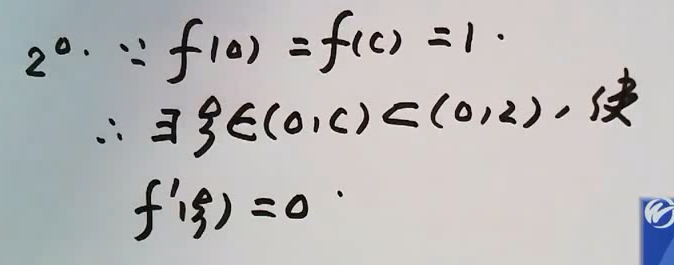 2°. ∵ f(0) = f(c) = 1.
∴ ∃ ξ ∈ (0, c) ⊂ (0, 2), 使
f'(ξ) = 0.